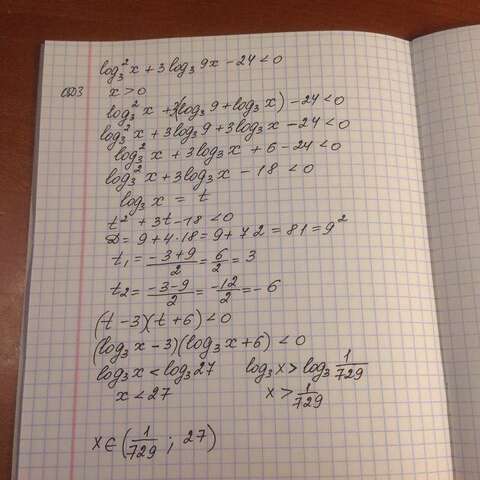 log₃²x + 3log₃9x - 24 < 0
ОДЗ x > 0
log₃²x + 3(log₃9 + log₃x) - 24 < 0
log₃²x + 3log₃9 + 3log₃x - 24 < 0
log₃²x + 3log₃x + 6 - 24 < 0
log₃²x + 3log₃x - 18 < 0
log₃x = t
t² + 3t - 18 < 0
D = 9 + 4·18 = 9 + 72 = 81 = 9²
t₁ = (-3+9)/2 = 6/2 = 3
t₂ = (-3-9)/2 = -12/2 = -6
(t - 3)(t + 6) < 0
(log₃x - 3)(log₃x + 6) < 0
log₃x < log₃27 log₃x > log₃ 1/729
x < 27 x > 1/729
x ∈ (1/729 ; 27)